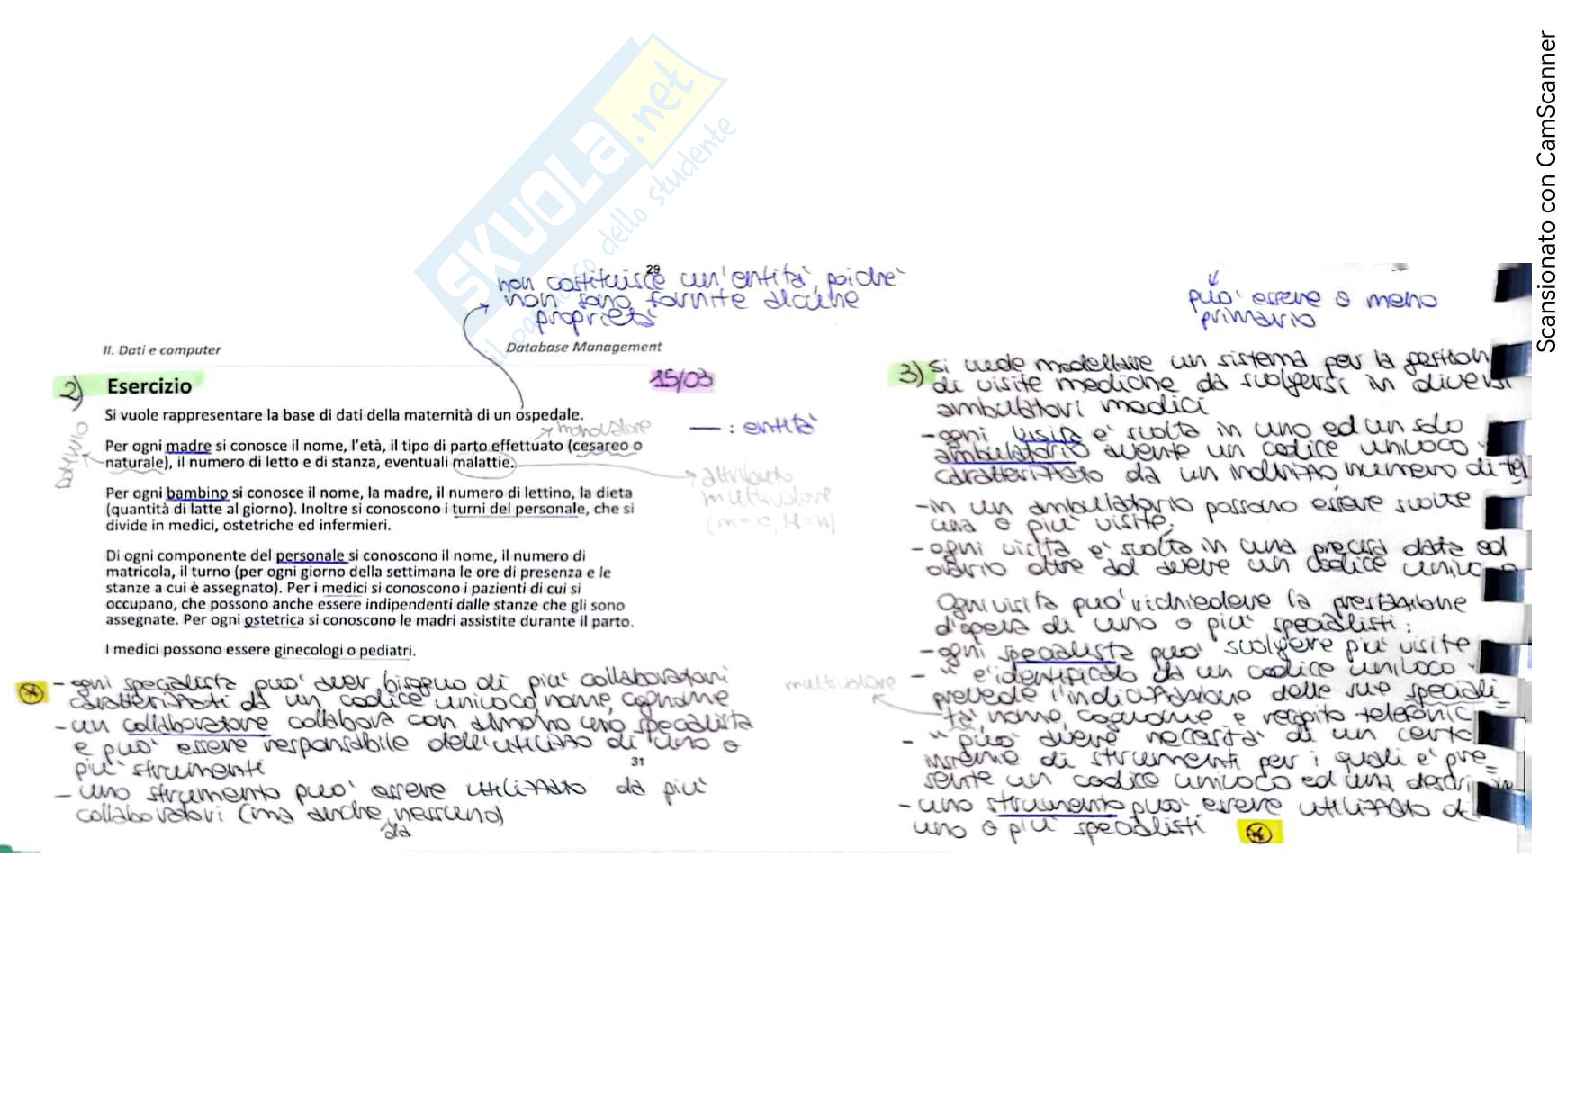 SKUOLA.net
il paradiso dello studente
Scansionato con CamScanner
29
non costituisce un'entità, poiché
non sono fornite alcune
proprietà
II. Dati e computer
Database Management
2) Esercizio
15/03
Si vuole rappresentare la base di dati della maternità di un ospedale.
monovalore
— : entità
Per ogni madre si conosce il nome, l'età, il tipo di parto effettuato (cesareo o
naturale), il numero di letto e di stanza, eventuali malattie.
attributo
multivalore
(m=0, M=N)
Per ogni bambino si conosce il nome, la madre, il numero di lettino, la dieta
(quantità di latte al giorno). Inoltre si conoscono i turni del personale, che si
divide in medici, ostetriche ed infermieri.
Di ogni componente del personale si conoscono il nome, il numero di
matricola, il turno (per ogni giorno della settimana le ore di presenza e le
stanze a cui è assegnato). Per i medici si conoscono i pazienti di cui si
occupano, che possono anche essere indipendenti dalle stanze che gli sono
assegnate. Per ogni ostetrica si conoscono le madri assistite durante il parto.
I medici possono essere ginecologi o pediatri.
- ogni specialista può aver bisogno di più collaboratori
caratterizzati da un codice univoco, nome, cognome
- un collaboratore collabora con almeno uno specialista
e può essere responsabile dell'utilizzo di uno o
più strumenti
31
- uno strumento può essere utilizzato da più
collaboratori (ma anche da nessuno)
può essere o meno
primario
3) si vuole modellare un sistema per la gestion
di visite mediche da svolgersi in diversi
ambulatori medici
- ogni visita è svolta in uno ed un solo
ambulatorio avente un codice univoco
caratterizzato da un indirizzo, numero di tel
- in un ambulatorio possono essere svolte
una o più visite.
- ogni visita è svolta in una precisa data ed
orario oltre ad avere un codice univoco
Ogni visita può richiedere la prestazione
d'opera di uno o più specialisti:
- ogni specialista può svolgere più visite
- " è identificato da un codice univoco
multivalore
prevede l'indicazione delle sue speciali-
tà, nome, cognome e recapito telefonic
- " può avere necessità di un certo
insieme di strumenti per i quali è pre-
sente un codice univoco ed una descri
- uno strumento può essere utilizzato da
uno o più specialisti